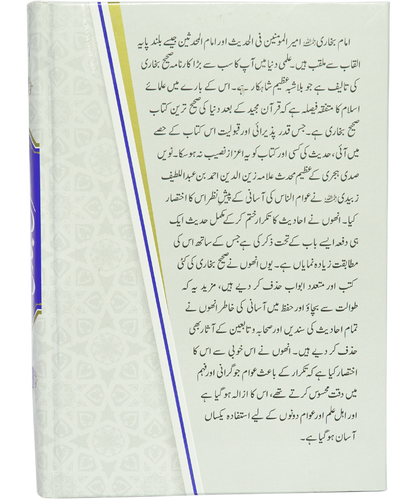 امام بخاری رحمہ اللہ امیر المؤمنین فی الحدیث اور امام المحدثین جیسے بلند پایہ
القاب سے ملقب ہیں۔ علمی دنیا میں آپ کا سب سے بڑا کارنامہ صحیح بخاری
کی تالیف ہے جو بلاشبہ عظیم شاہکار ہے۔ اس کے بارے میں علمائے
اسلام کا متفقہ فیصلہ ہے کہ قرآن مجید کے بعد دنیا کی صحیح ترین کتاب
صحیح بخاری ہے۔ جس قدر پذیرائی اور قبولیت اس کتاب کے حصے
میں آئی، حدیث کی کسی اور کتاب کو یہ اعزاز نصیب نہ ہوسکا۔ نویں
صدی ہجری کے عظیم محدث علامہ زین الدین احمد بن عبداللطیف
زبیدی رحمہ اللہ نے عوام الناس کی آسانی کے پیش نظر اس کا اختصار
کیا۔ انھوں نے احادیث کا تکرار ختم کر کے مکمل حدیث ایک
ہی دفعہ ایسے باب کے تحت ذکر کی ہے جس کے ساتھ اس کی
مطابقت زیادہ نمایاں ہے۔ یوں انھوں نے صحیح بخاری کی کئی
کتب اور متعدد ابواب حذف کر دیے ہیں، مزید یہ کہ
طوالت سے بچاؤ اور حفظ میں آسانی کی خاطر انھوں نے
تمام احادیث کی سندیں اور صحابہ و تابعین کے آثار بھی
حذف کر دیے ہیں۔ انھوں نے اس خوبی سے اس کا
اختصار کیا ہے کہ تکرار کے باعث عوام جو گرانی اور فہم
میں دقت محسوس کرتے تھے، اس کا ازالہ ہو گیا ہے
اور اہل علم اور عوام دونوں کے لیے استفادہ یکساں
آسان ہو گیا ہے۔